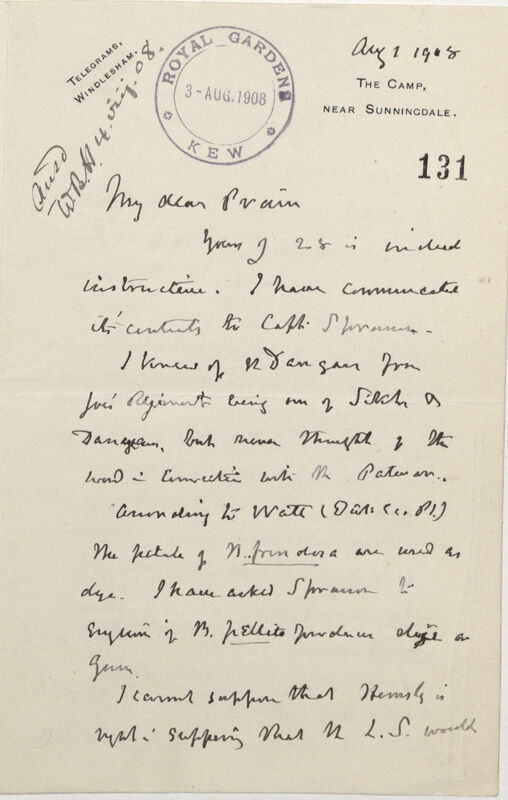 TELEGRAMS,
WINDLESHAM.
ansd
W.B.H. 4.viij.08.
ROYAL GARDENS
3-AUG.1908
KEW
Aug 1 1908
THE CAMP,
NEAR SUNNINGDALE.
131
My dear Prain
Yours of 28 is indeed
instructive. I have communicated
its contents to Capt.
I knew of the Dangars from
Joe's Regiment being one of Sikhs &
but never thought of the
word in connection with the
According to Watt (Dict &c. Pl)
the petals of B. frondosa are used as
dye. I have asked to
enquire if B. pellita produces dye or
Gum.
I cannot suppose that Hemsley is
right in supposing that the L.S. would